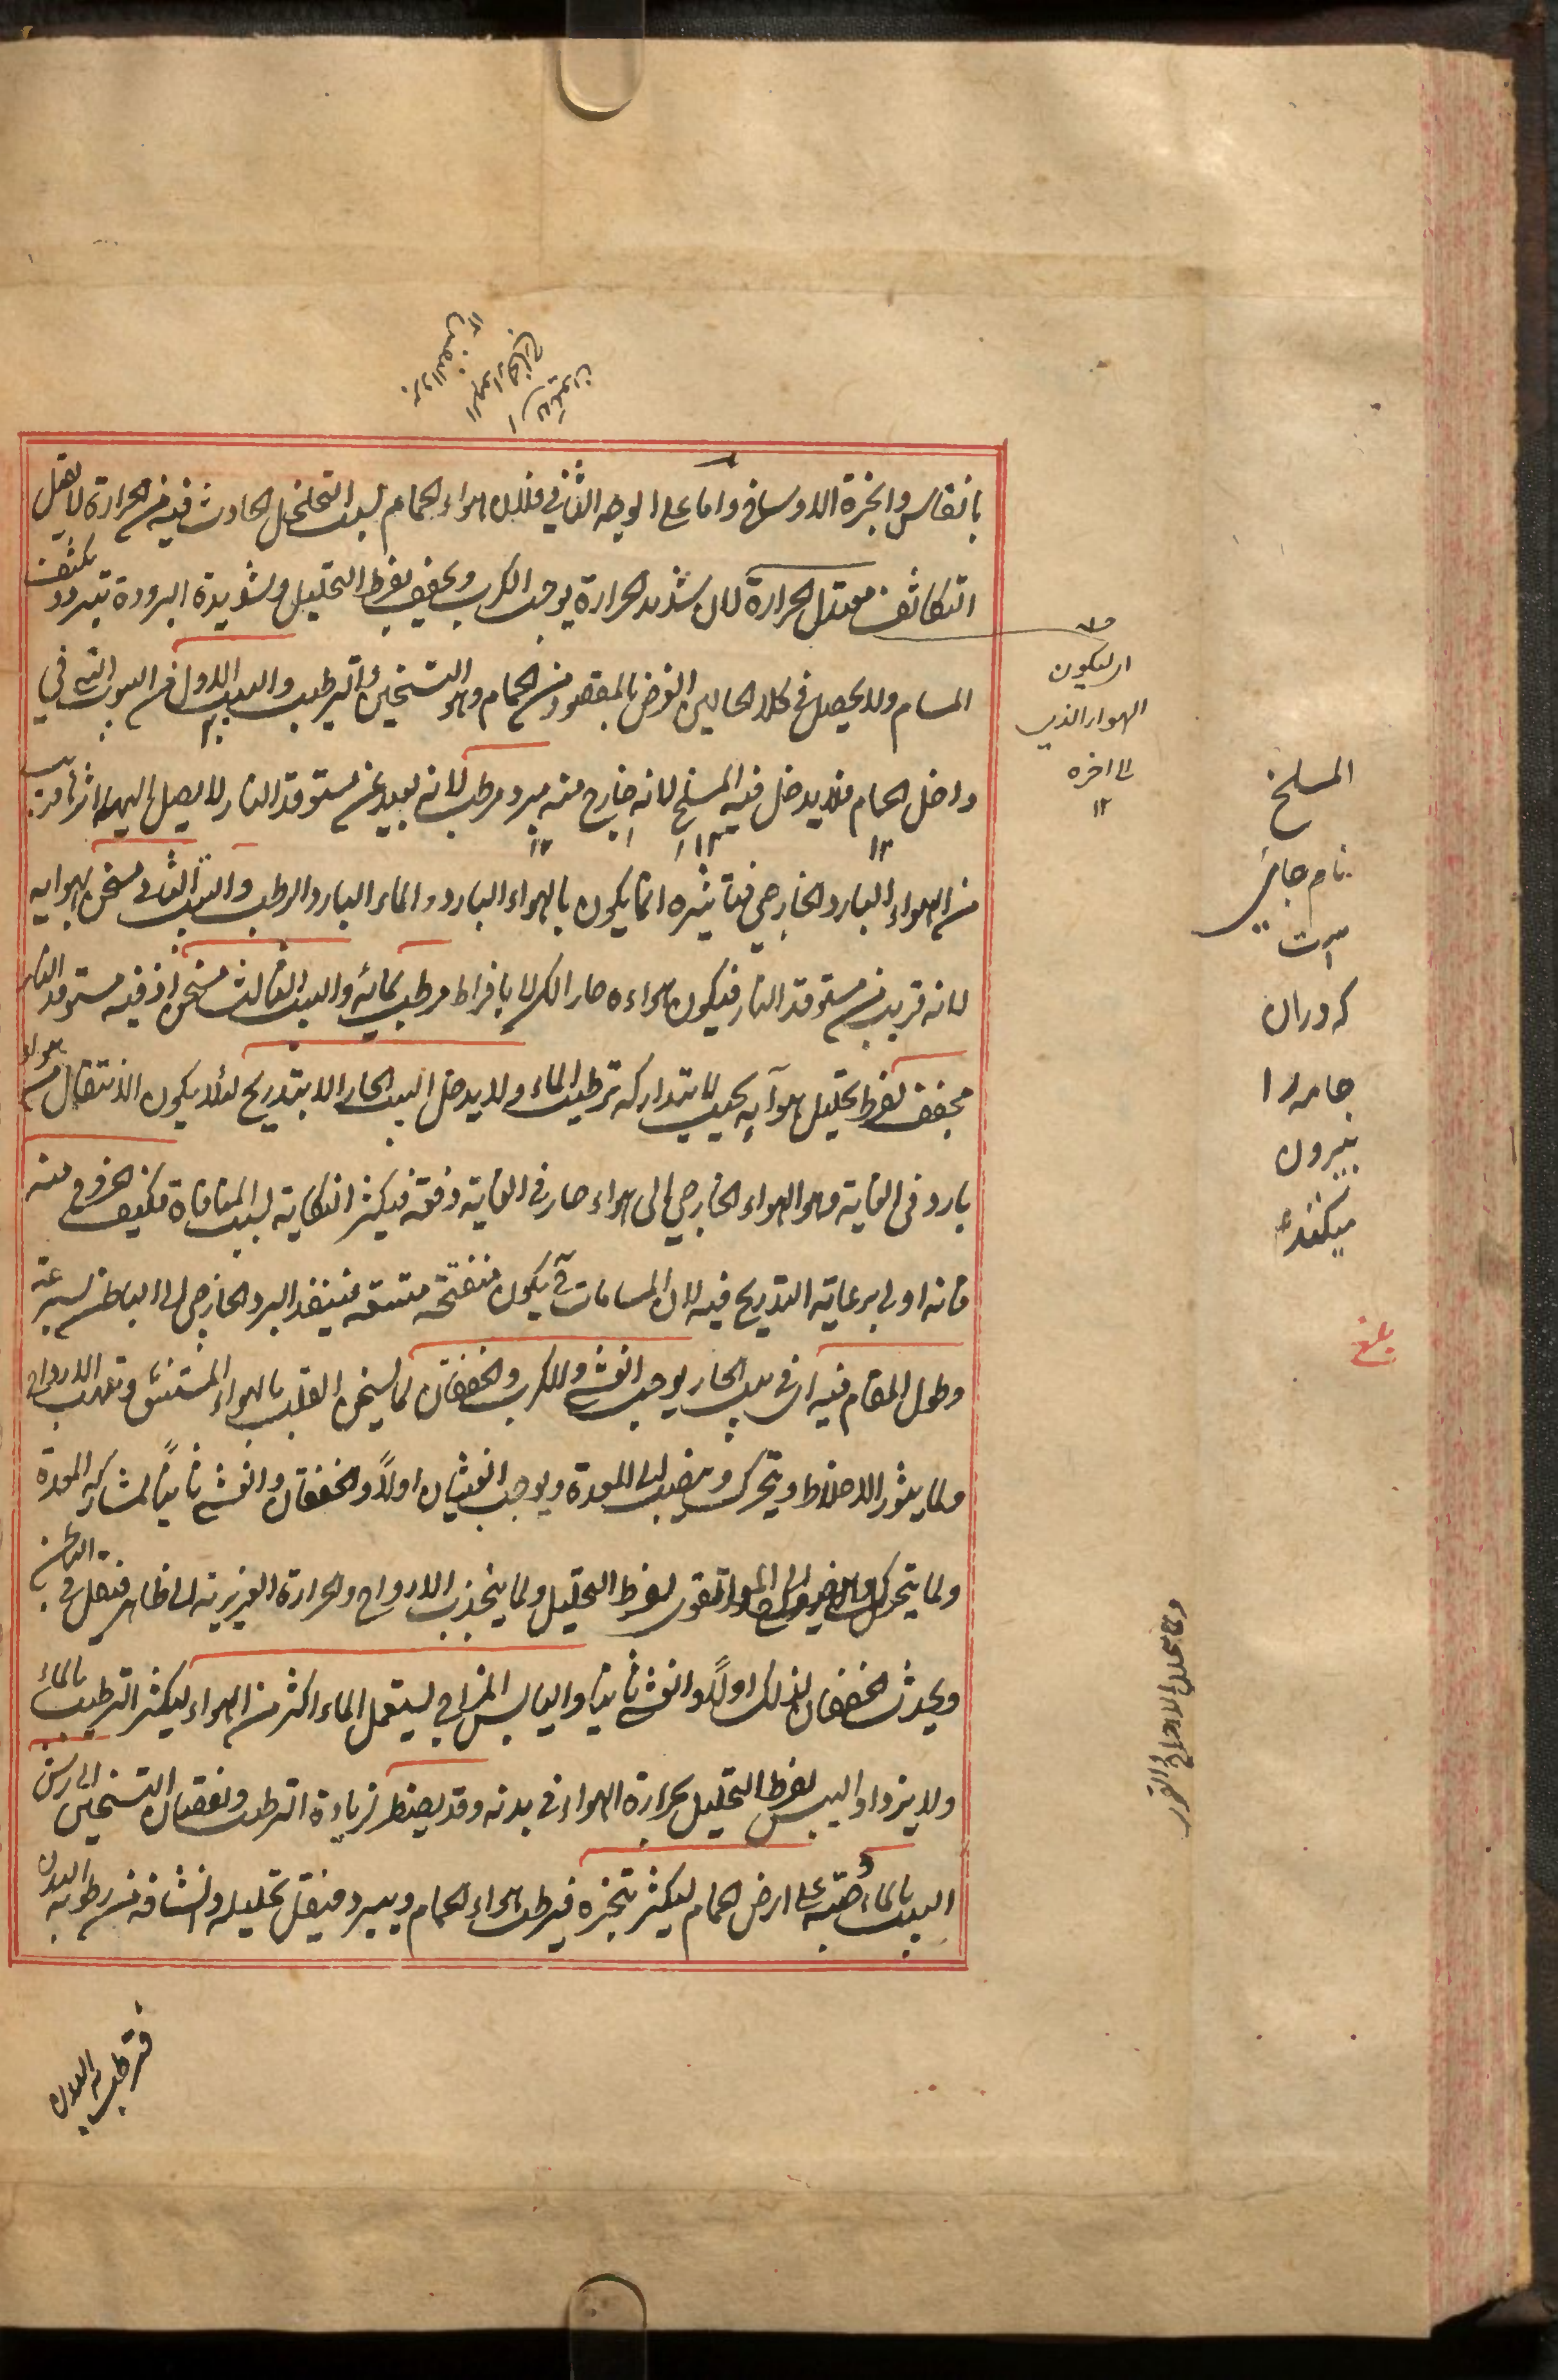 بانفاس وابخرة الاوساخ واما على الوجه الثاني فلان هواء الحمام لسبب التخلخل الحادث فيه من الحرارة لا يقبل
التكاثف معتدل الحرارة لان شديد الحرارة يوجب الكرب ويجفف بفرط التحليل وشديدة البرودة تبرد و يكثف
المسام ولا يحصل في كلا الحالين الغرض بالمقصود من الحمام وهو التسخين والترطيب والبيت الاول من البيوت التي في
داخل الحمام فلا يدخل فيه المسلخ لانه خارج منه مبرد مرطب لانه بعيد عن مستوقد النار لا يصل اليها اثر قريب
من الهواء البارد الخارجي فتاثيره انما يكون بالهواء البارد والماء البارد الرطب والبيت الثاني مسخن بهوايه
لانه قريب من مستوقد النار فيكون هواءه حارا لكن لا بافراط مرطب بمائه والبيت الثالث مسخن اذ فيه مستوقد النار
مجفف لفرط تحليل هوآيه بحيث لا يتداركه ترطيب الماء ولا يدخل البيت الحار الا بتدريج لئلا يكون الانتقال من هواء
بارد في الغاية وهو الهواء الخارجي الى هواء حار في الغاية دفعة فيكثر النكاية لسبب المنافاة فكيف الخروج منه
فانه اولى برعاية التدريج فيه لان المسامات ح يكون منفتحة متسعة فينفذ البرد الخارجي الى الباطن بسرعة
وطول المقام فيه اى في بيت الحار يوجب الغشي والكرب والخفقان لما يسخن القلب بالهواء المستنشق وتلهب الارواح
ولما يثور الاخلاط ويتحرك وينصب الى المعدة ويوجب الغثيان اولاً والخفقان والغشي ثانياً لمشاركة المعدة
ولما يتحرك القوى لفرط التحليل ولما ينجذب الارواح والحرارة الغريزية الى ظاهر فتقل في الباطن
ويحدث الخفقان لذلك اولاً والغشي ثانيا واليابس المزاج يستعمل الماء اكثر من الهواء ليكثر الترطيب بالماء
ولا يزداد اليبس لفرط التحليل بحرارة الهواء في بدنه وقد يضطر لزيادة الترطيب ونقصان التسخين الى رش
البيت بالماء وصبه على ارض الحمام ليكثر تبخره فيرطب هواء الحمام ويبرد فيقل تحليله وانشافه من رطوبة البدن
اى ليكون
الهواء الذى
الى اخره
١٢
المسلخ
نام جاى
است
كه دران
جامه را
بيرون
ميكنند
بلغ
فترطب البدن